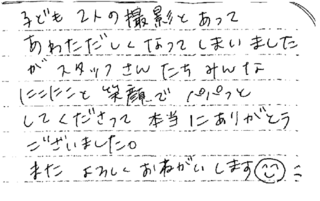 子ども2人の撮影とあって
あわただしくなってしまいました
が スタッフさんたちみんな
にこにこと笑顔で パパっと
してくださって 本当にありがとう
ございました。
また よろしくおねがいします